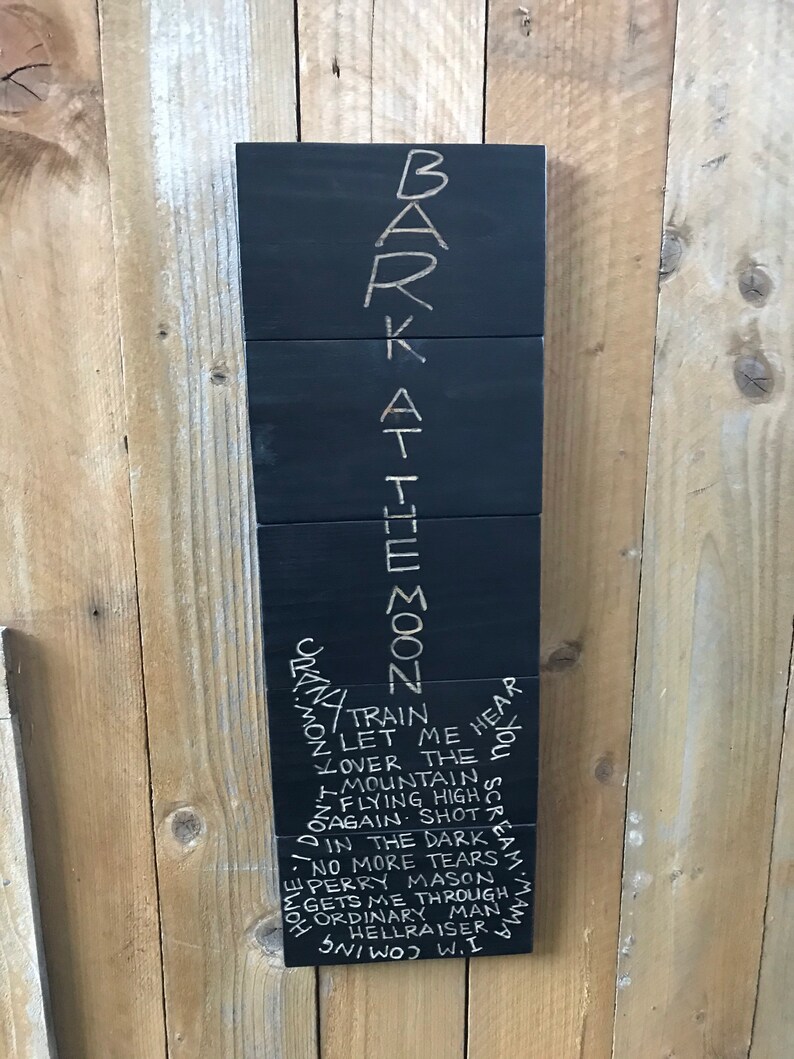 BARK AT THE MOON
CRAZY
TRAIN
LET ME HEAR YOU SCREAM · MAMA I'M COMING HOME · I DON'T KNOW ·
OVER THE
MOUNTAIN
FLYING HIGH
AGAIN · SHOT
IN THE DARK
NO MORE TEARS
PERRY MASON
GETS ME THROUGH
ORDINARY MAN
HELLRAISER